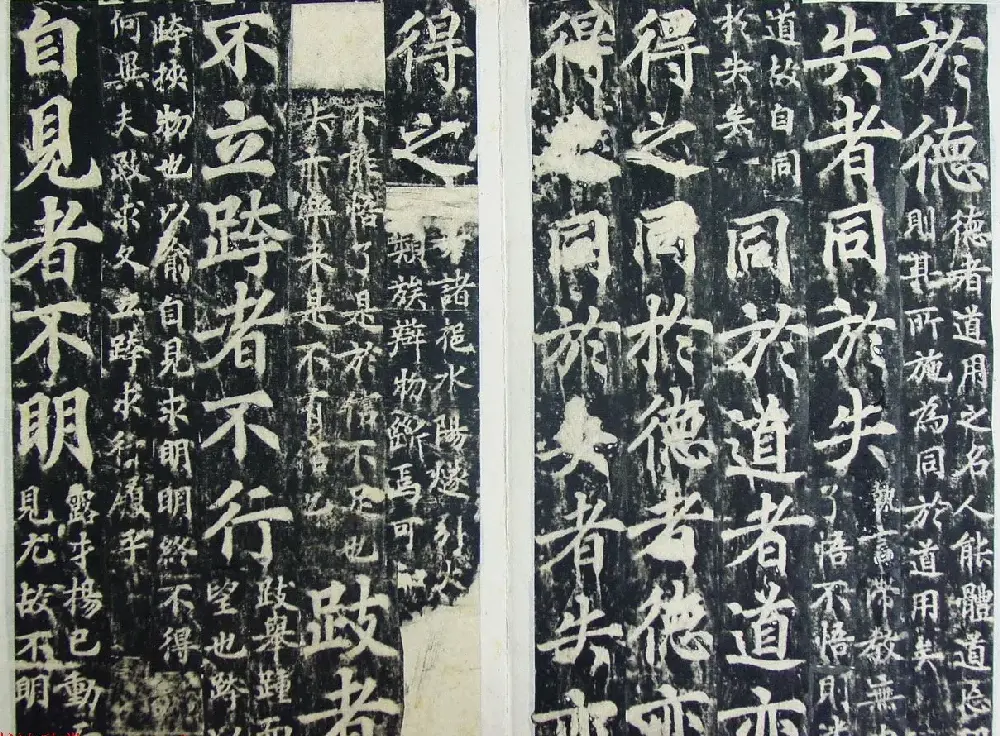 於德
德者道用之名人能體道忘
則其所施為同於道用矣
失者同於失
執言滯教無
了悟不悟則
道故自同
於失矣
同於道者道亦
得之同於德者德亦
得之同於失者失亦
得之
方諸挹水陽燧引火
類族辯物斷焉可知
不能悟了是於信不足也
失亦樂來是不有信
跂者
不立跨者不行
跂舉踵而
望也跨以
跨挾物也以喻自見求明明終不得
何異夫跂求久立跨求行履乎
自見者不明
露才揚己動而
見尤故不明